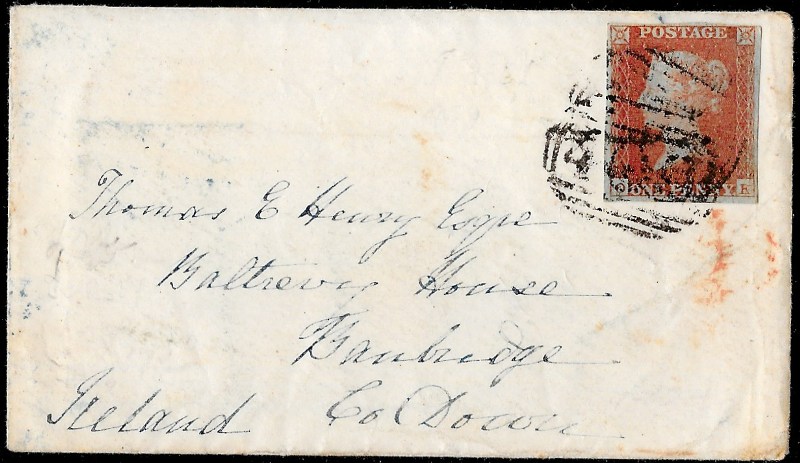 POSTAGE
ONE PENNY
Thomas E Henry Esqre
House
Banbridge
Ireland Co Down